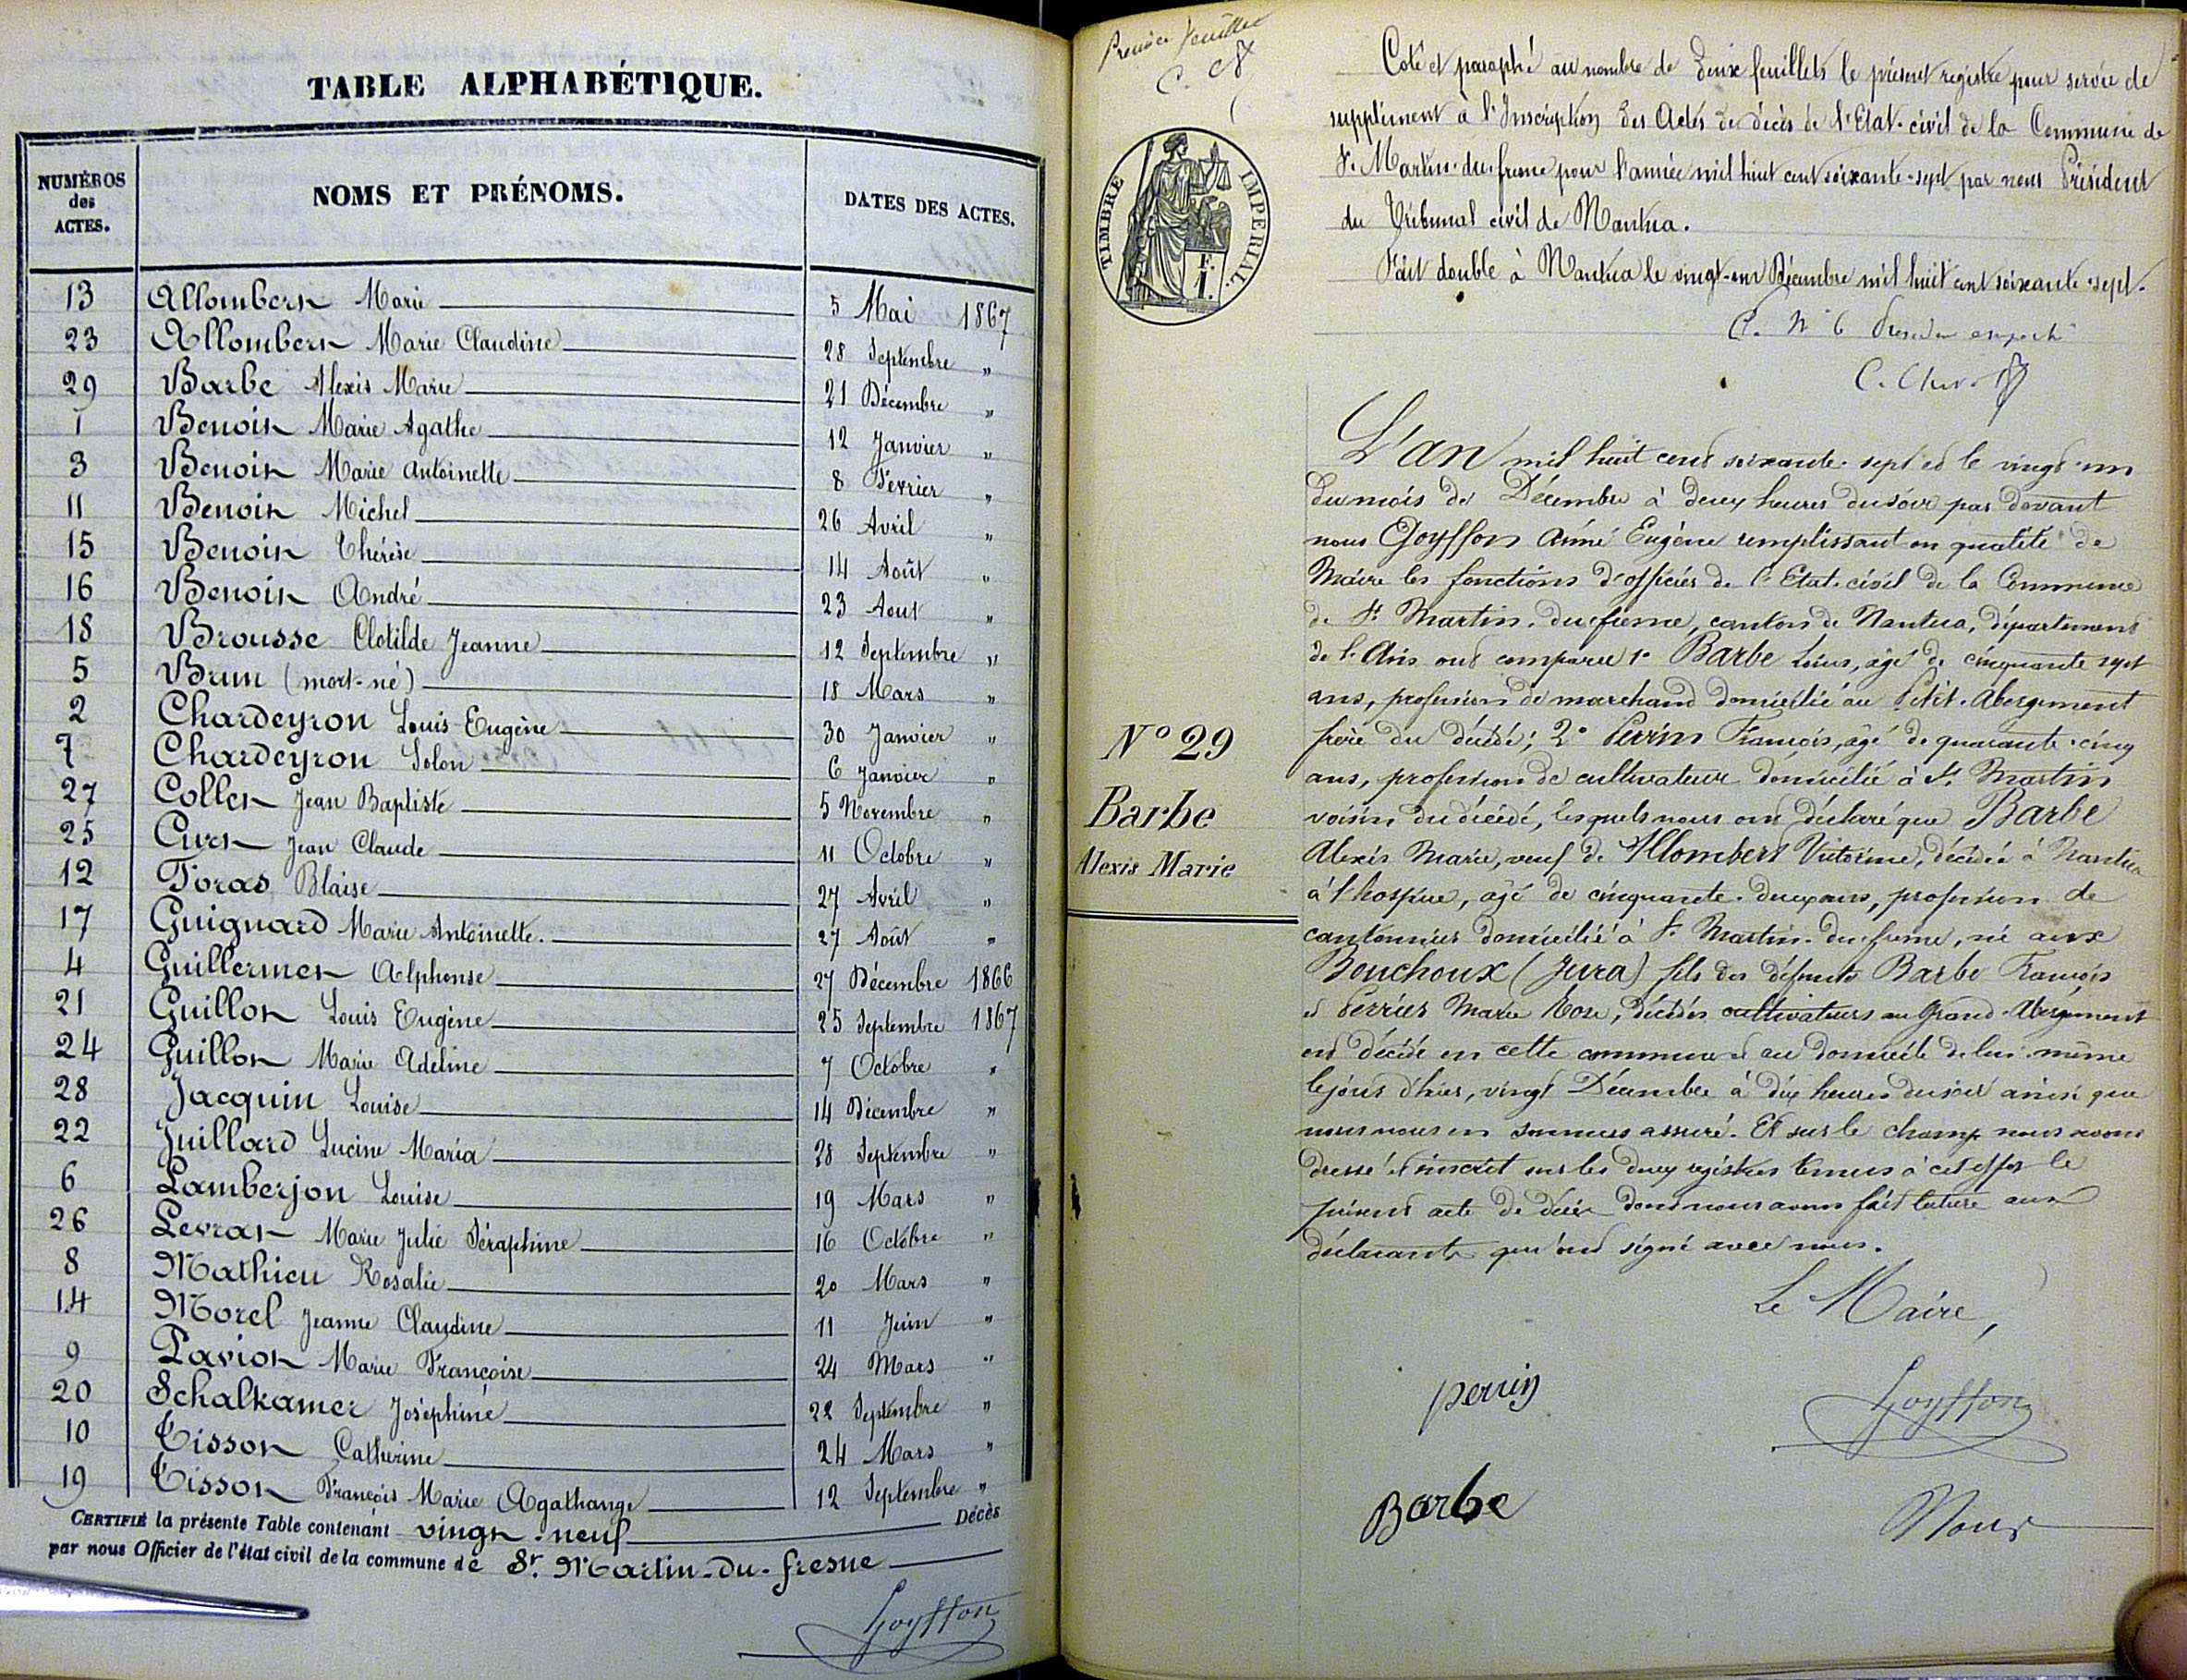 TABLE ALPHABÉTIQUE.
NUMÉROS des ACTES. NOMS ET PRÉNOMS. DATES DES ACTES.
13 Allombert Marie 5 Mai 1867
23 Allombert Marie Claudine 28 Septembre "
29 Barbe Alexis Marie 21 Décembre "
1 Benoit Marie Agathe 12 Janvier "
3 Benoit Marie Antoinette 8 Février "
11 Benoit Michel 26 Avril "
15 Benoit Thérèse 14 Août "
16 Benoit André 23 Aout "
18 Brousse Clotilde Jeanne 12 Septembre "
5 Brun (mort-né) 18 Mars "
2 Chardeyron Louis Eugène 30 Janvier "
7 Chardeyron Solon 6 Janvier "
27 Collet Jean Baptiste 5 Novembre "
25 Curt Jean Claude 11 Octobre "
12 Foras Blaise 27 Avril "
17 Guignard Marie Antoinette. 27 Août "
4 Guillermet Alphonse 27 Décembre 1866
21 Guillot Louis Eugène 25 Septembre 1867
24 Guillot Marie Adeline 7 Octobre "
28 Jacquin Louise 14 Décembre "
22 Juillard Lucine Maria 28 Septembre "
6 Lamberjon Louise 19 Mars "
26 Levrat Marie Julie Séraphine 16 Octobre "
8 Mathieu Rosalie 20 Mars "
14 Morel Jeanne Claudine 11 Juin "
9 Paviot Marie Françoise 24 Mars "
20 Schalkamer Joséphine 22 Septembre "
10 Tissot Catherine 24 Mars "
19 Tissot François Marie Agathange 12 Septembre "
CERTIFIÉ la présente Table contenant vingt-neuf Décès
par nous Officier de l'état civil de la commune de St. Martin-du-fresne
Goyffon
Premier feuillet
C.
TIMBRE IMPÉRIAL.
F. 1.
Coté et paraphé au nombre de Deux feuillets le présent registre pour servir de
supplément à l'Inscription des Actes de décès de l'Etat-civil de la Commune de
St. Martin-du-fresne pour l'année mil huit cent soixante-sept par nous Président
du Tribunal civil de Nantua.
Fait double à Nantua le vingt-un Décembre mil huit cent soixante-sept.
N° 29
Barbe
Alexis Marie
L'an mil huit cent soixante-sept et le vingt-un
du mois de Décembre à deux heures du soir par devant
nous Goyffon Aimé Eugène remplissant en qualité de
Maire les fonctions d'officier de l'Etat-civil de la Commune
de St Martin-du-fresne, canton de Nantua, département
de l'Ain ont comparu 1° Barbe Louis, âgé de cinquante sept
ans, profession de marchand domicilié au Petit-Abergement
frère du décédé; 2° Perrin François, âgé de quarante-cinq
ans, profession de cultivateur domicilié à St Martin
voisin du décédé, lesquels nous ont déclaré que Barbe
Alexis Marie, veuf de Allombert Victorine, décédée à Nantua
à l'hospice, âgé de cinquante-deux ans, profession de
cantonnier domicilié à St. Martin-du-fresne, né aux
Bouchoux (Jura) fils des défunts Barbe François
et Perrier Marie Rose, décédés cultivateurs au Grand-Abergement
est décédé en cette commune et au domicile de lui-même
le jour d'hier, vingt Décembre à dix heures du soir ainsi que
nous nous en sommes assuré. Et sur le champ nous avons
dressé et inscrit sur les deux registres tenus à cet effet le
présent acte de décès dont nous avons fait lecture aux
déclarants qui ont signé avec nous.
Le Maire,
perrin
Goyffon
Barbe
Nous